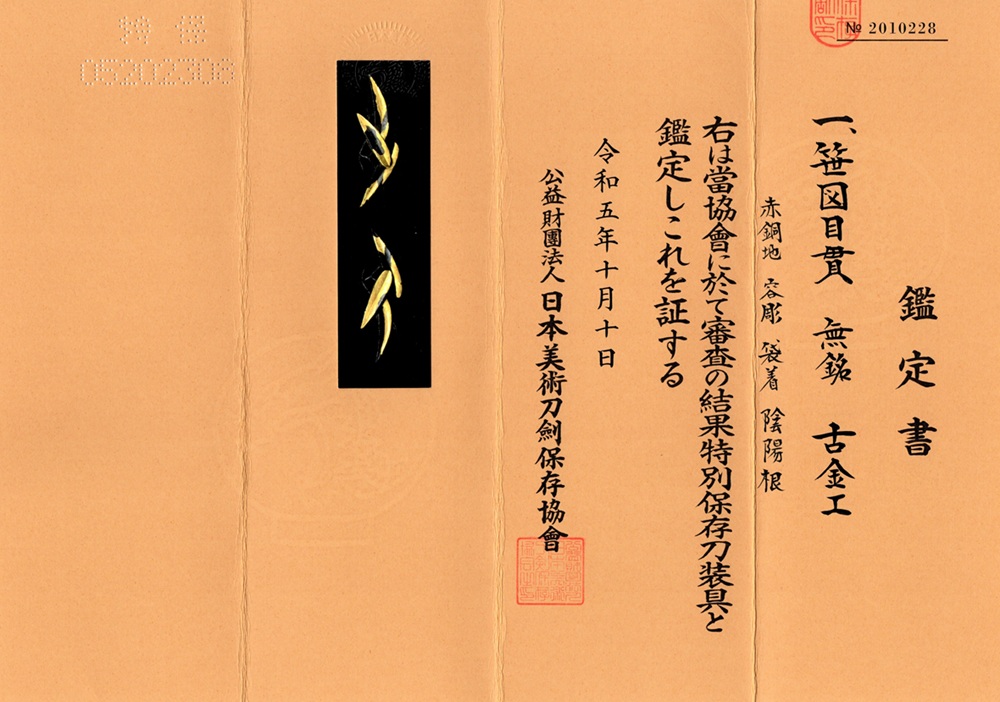 № 2010228
鑑定書
一、笹図目貫 無銘 古金工
赤銅地 容彫 袋着 陰陽根
右は當協會に於て審査の結果特別保存刀装具と
鑑定しこれを証する
令和五年十月十日
公益財團法人 日本美術刀劍保存協會
特保
05202308